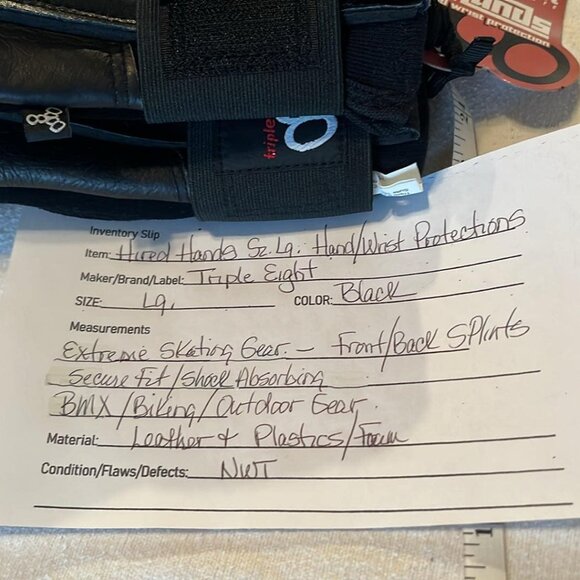 hands
wrist protection
triple
Inventory Slip
Item: Hired Hands Sz. Lg. Hand/Wrist Protections
Maker/Brand/Label: Triple Eight
SIZE: Lg. COLOR: Black
Measurements
Extreme Skating Gear. - Front/Back Splints
Secure Fit/Shock Absorbing
BMX/Biking/Outdoor Gear.
Material: Leather & Plastics/Foam
Condition/Flaws/Defects: NWT
1